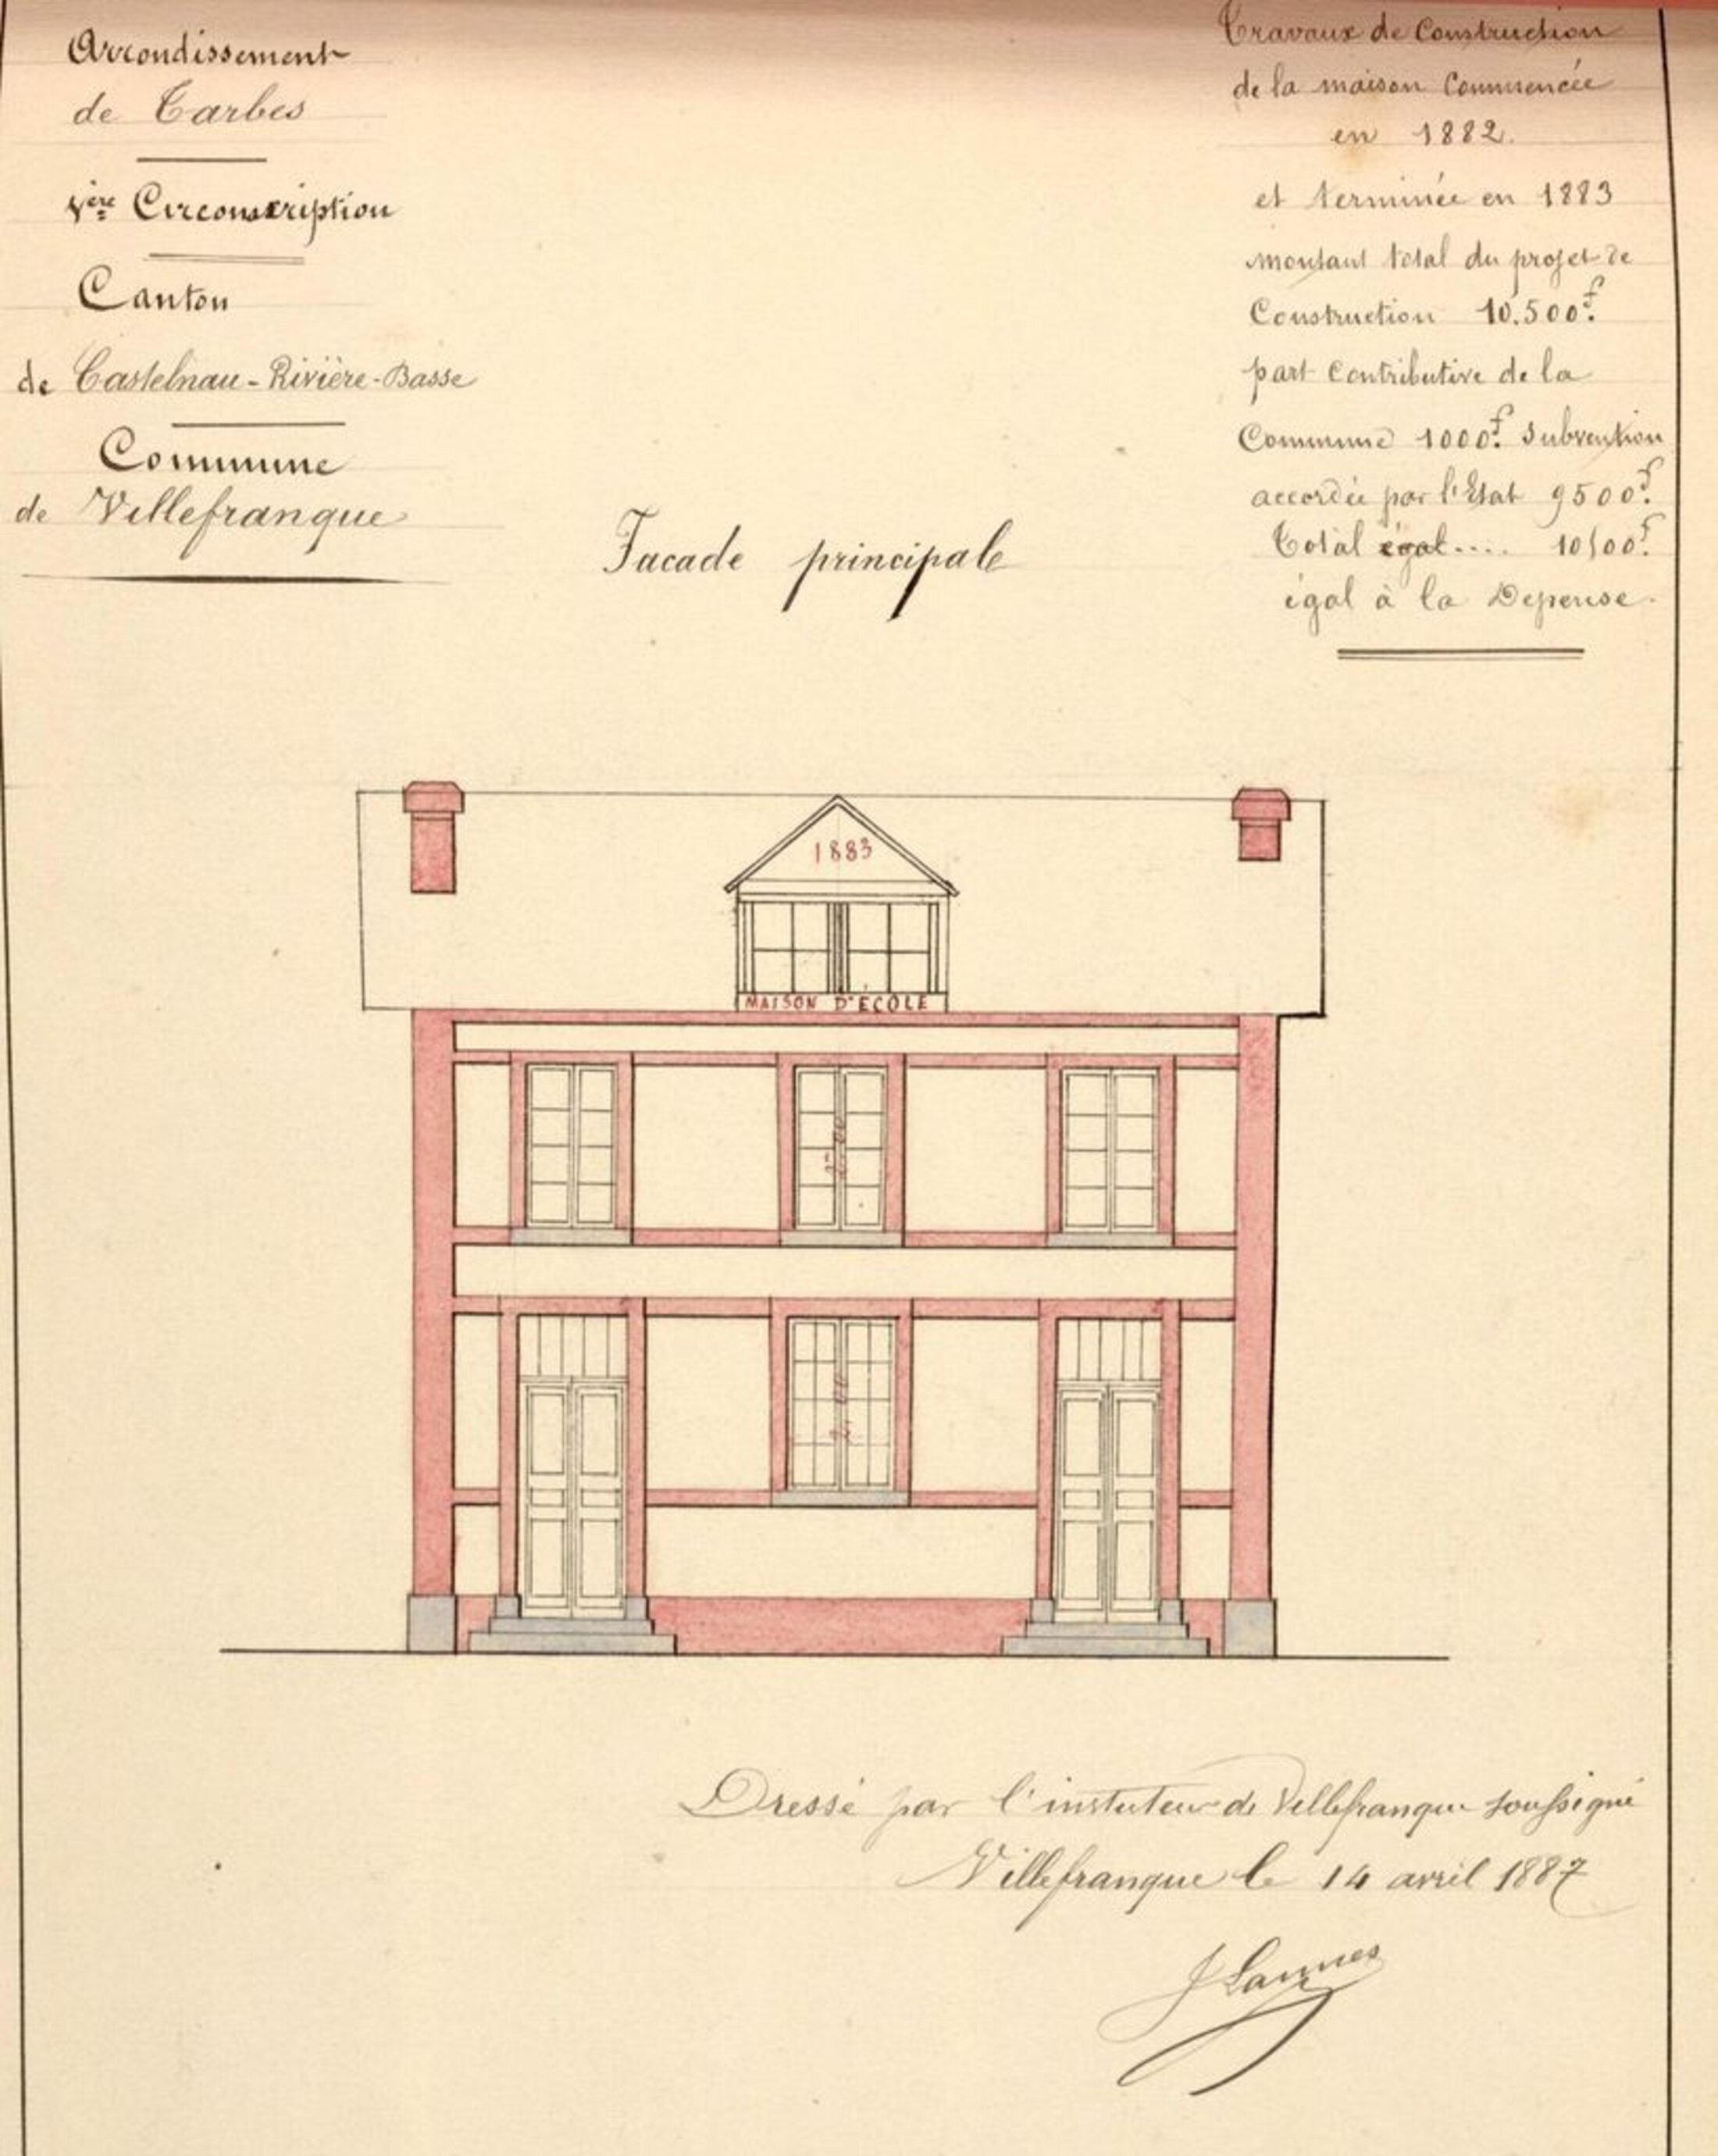 Arrondissement
de Tarbes
1ère Circonscription
Canton
de Castelnau-Rivière-Basse
Commune
de Villefranque
Travaux de Construction
de la maison Commencée
en 1882.
et terminée en 1883
montant total du projet de
Construction 10.500f.
part Contributive de la
Commune 1000f. Subvention
accordée par l'Etat 9500f.
Total égal.... 10500f.
égal à la Depense.
Facade principale
1883
MAISON D'ECOLE
Dressé par l'instituteur de Villefranque soussigné
Villefranque le 14 avril 1887
J Lannes